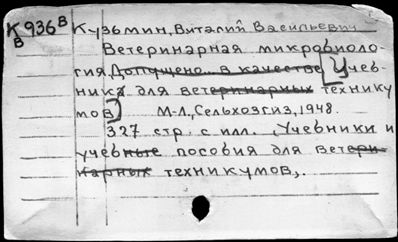 К936В Кузьмин, Виталий Васильевич
В
Ветеринарная микробиоло-
гия. Допущено.. в качестве [Учеб-
ника для ветеринарных технику
мов] М-Л., Сельхозгиз, 1948.
327 стр. с илл. (Учебники и
учебные пособия для ветери-
нарных техникумов).